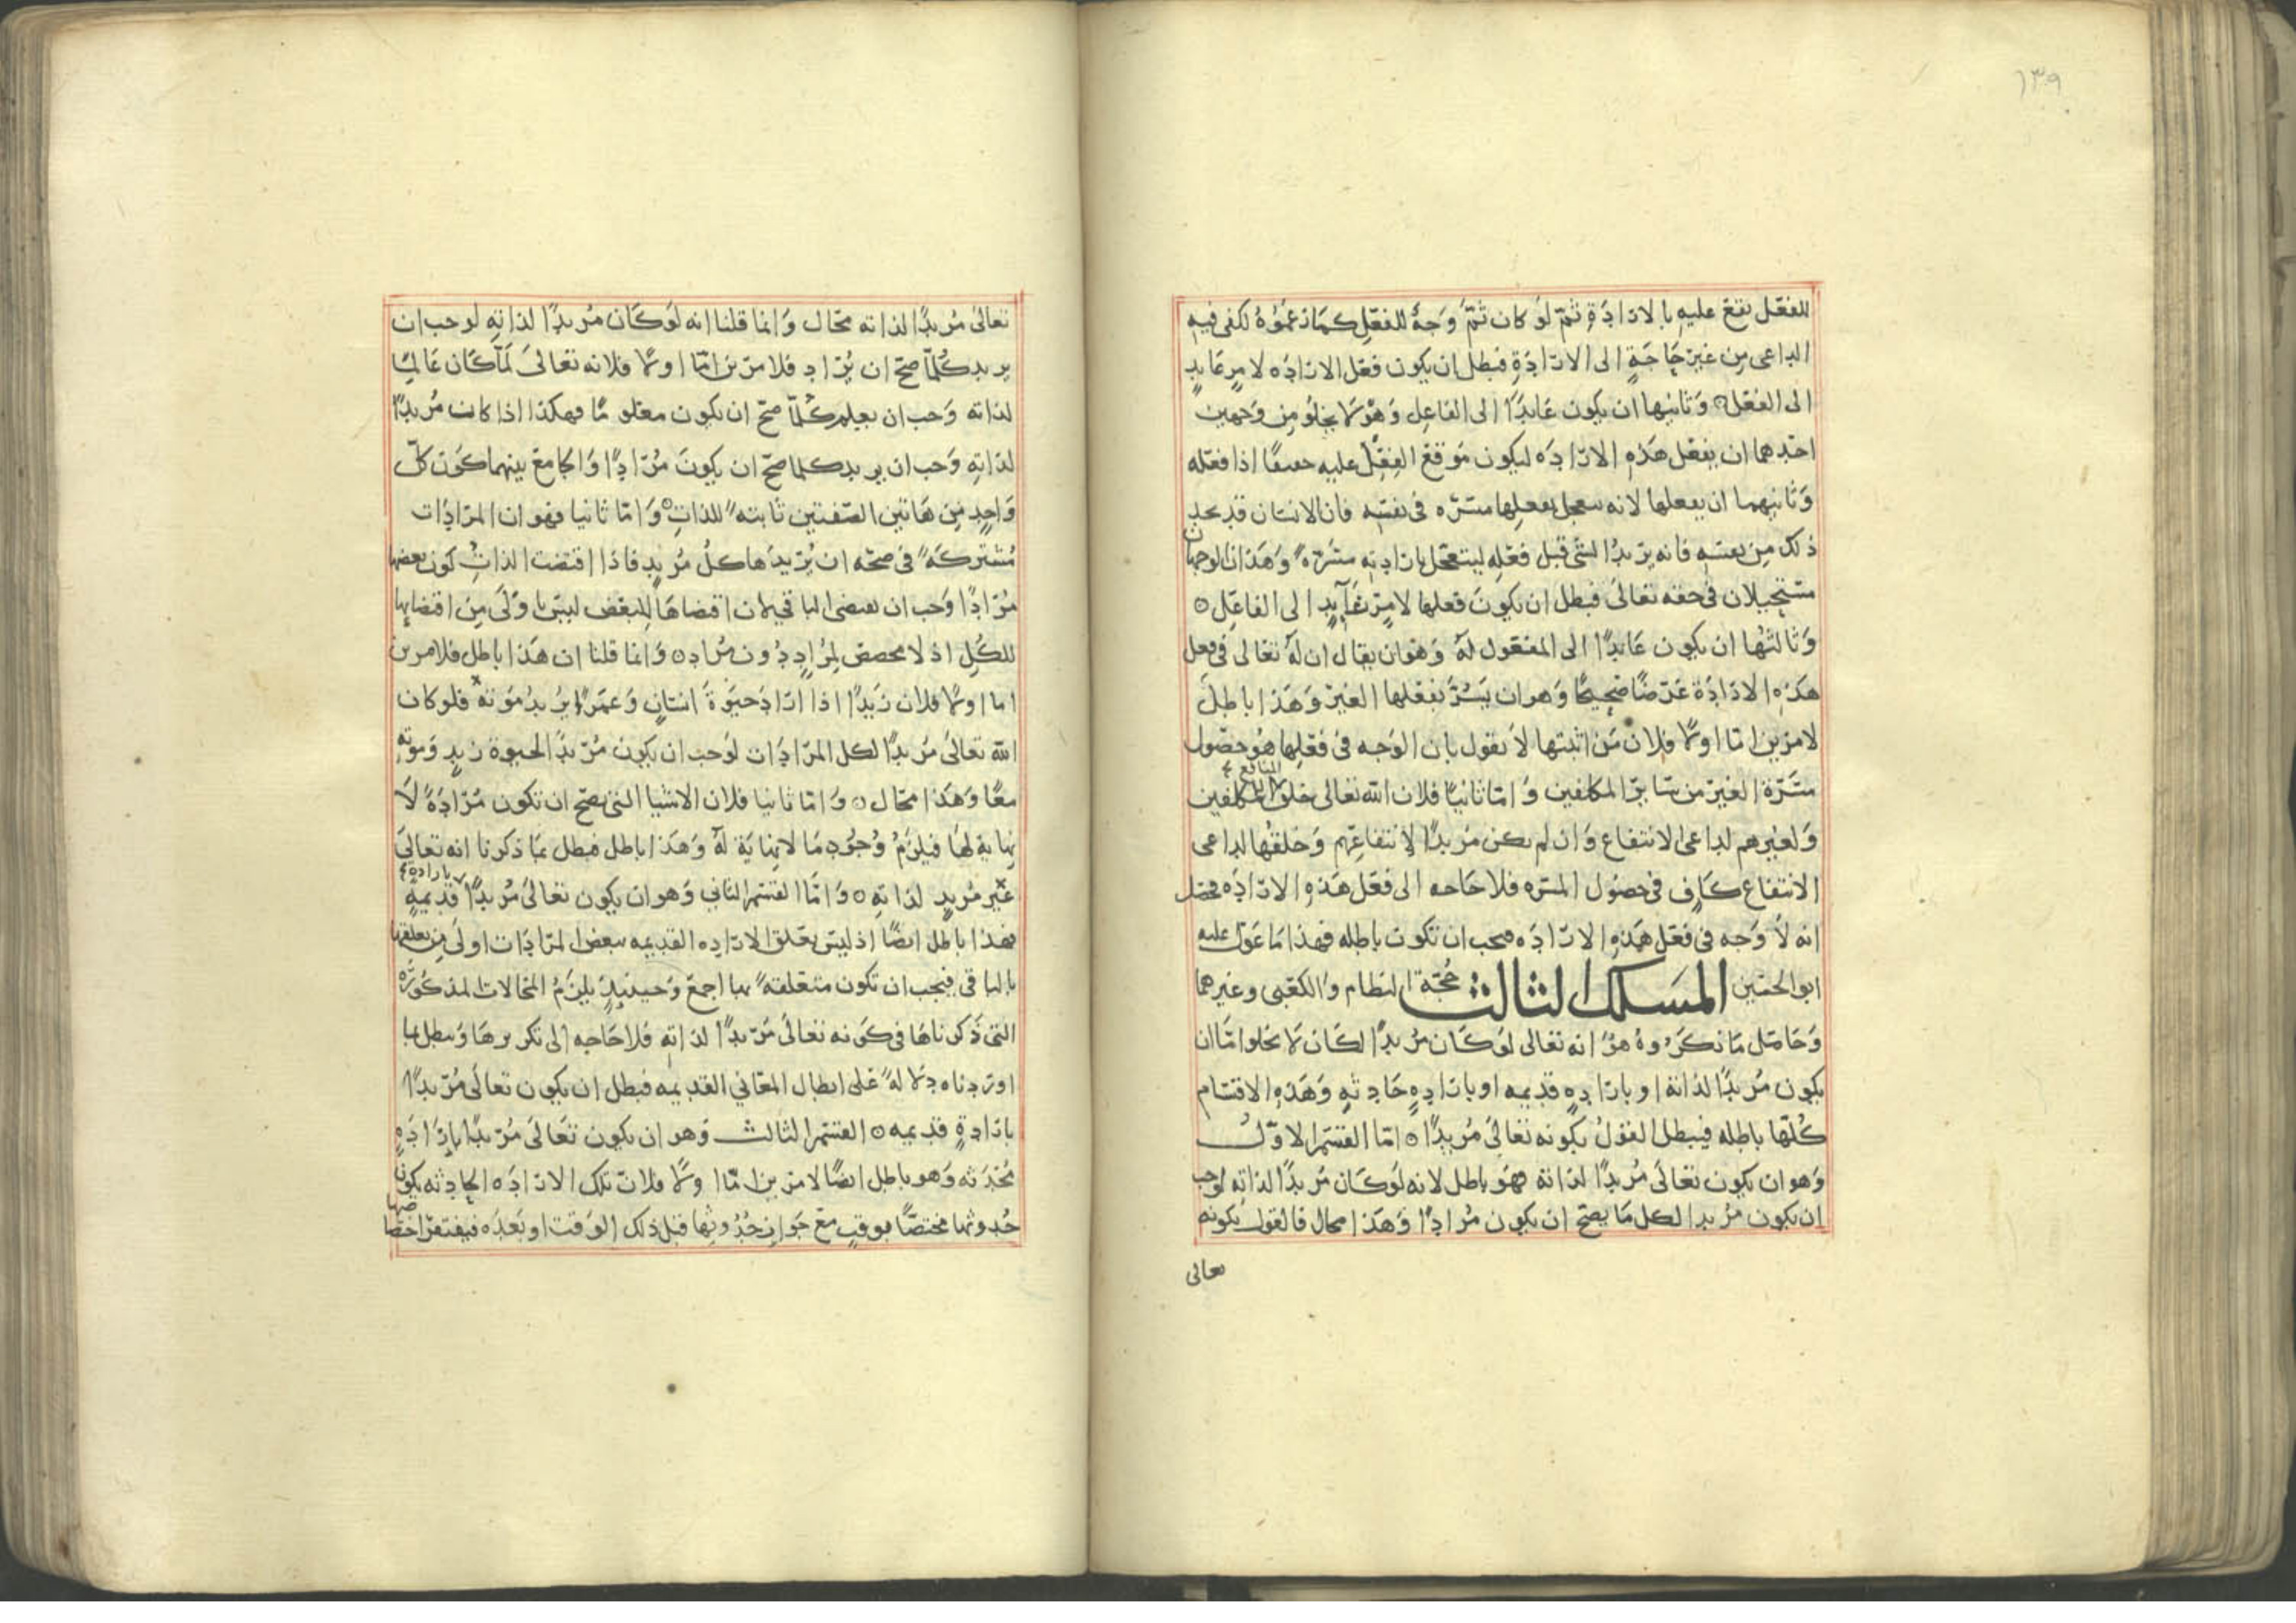 ١٣٩
للفعل يقع عليه بالارادة ثم لو كان ثم وجه للفعل كما زعموه لكفى فيه
الداعى من غير حاجة الى الارادة فبطل ان يكون فعل الاراده لامر عايد
الى الفعل ٥ وثانيها ان يكون عايدًا الى الفاعل وهو لا يخلو من وجهين
احدهما ان يفعل هذه الاراده ليكون موقع الفعل عليه اذا فعله
وثانيهما ان يفعلها لانه بفعلها مسره فى نفسه فان الانسان قد يجد
ذلك من نفسه فانه يريد الشى قبل فعله ليتعجل بارادته مسرة وهذان الوجهان
مستحيلان فى حقه تعالى فبطل ان يكون فعلها لامر عايد الى الفاعل ٥
وثالثها ان يكون عايدًا الى المفعول له وهو ان يقال ان له تعالى فى فعل
هذه الارادة غرضًا صحيحًا وهو ان يسر بفعلها الغير وهذا باطل
لامرين اما اولا فلان من اثبتها لا يقول بان الوجه فى فعلها هو حصول
مسرة الغير من ساير المكلفين واما ثانيًا فلان الله تعالى خلق المنافع للمكلفين
ولغيرهم لداعى الانتفاع وان لم يكن مريدًا لانتفاعهم وخلقها لداعى
الانتفاع كاف فى حصول المسره فلا حاجه الى فعل هذه الاراده فحصل
انه لا وجه فى فعل هذه الاراده فيجب ان تكون باطله فهذا ما عول عليه
ابو الحسين المسلك الثالث حجة النظام والكعبى وغيرهما
وحاصل ما ذكروه هو انه تعالى لو كان مريدًا لكان لا يخلوا اما ان
يكون مريدًا لذاته او باراده قديمه او باراده حادثه وهذه الاقسام
كلها باطله فيبطل القول بكونه تعالى مريدًا ٥ اما القسم الاول
وهو ان يكون تعالى مريدًا لذاته فهو باطل لانه لو كان مريدًا لذاته لوجب
ان يكون مريدا لكل ما يصح ان يكون مرادًا وهذا محال فالقول بكونه
تعالى
تعالى مريدًا لذاته محال وانما قلنا انه لو كان مريدًا لذاته لوجب ان
يريد كلما صح ان يراد فلامرين اما اولا فلانه تعالى لما كان عالمًا
لذاته وجب ان يعلم كلما صح ان يكون معلومًا فهكذا اذا كان مريدًا
لذاته وجب ان يريد كلما صح ان يكون مرادًا والجامع بينهما كون كل
واحد من هاتين الصفتين ثابته للذات ٥ واما ثانيا فهو ان المرادات
مشتركة فى صحه ان يريدها كل مريد فاذا اقتضت الذات كون بعضها
مرادًا وجب ان يقتضى الباقى لان اقتضاها للبعض ليس باولى من اقتضايها
للكل اذ لا مخصص لمراد دون مراد ٥ وانما قلنا ان هذا باطل فلامرين
اما اولا فلان زيدًا اذا اراد حيوة انسان وعمرًا يريد موته فلو كان
الله تعالى مريدًا لكل المرادات لوجب ان يكون مريدًا لحيوة زيد وموته
معًا وهذا محال ٥ واما ثانيا فلان الاشيا التى يصح ان تكون مرادة لا
نهاية لها فيلزم وجود ما لا نهاية له وهذا باطل فبطل بما ذكرنا انه تعالى
غير مريد لذاته ٥ واما القسم الثانى وهو ان يكون تعالى مريدًا بارادة قديمه
فهذا باطل ايضًا اذ ليس تعلق الاراده القديمه ببعض المرادات اولى من تعلقها
بالباقى فيجب ان تكون متعلقة بها اجمع وحينئذ يلزم المحالات المذكورة
التى ذكرناها فى كونه تعالى مريدًا لذاته فلا حاجه الى تكريرها ويبطل بما
اوردناه دلالة على ابطال المعانى القديمه فبطل ان يكون تعالى مريدًا
بارادة قديمه ٥ القسم الثالث وهو ان يكون تعالى مريدًا بارادة
محدثه وهو باطل ايضًا لامرين اما اولا فلان تلك الاراده الحادثه يكون
حدوثها مختصًا بوقت مع جواز حدوثها قبل ذلك الوقت او بعده فيفتقر اختصاصها